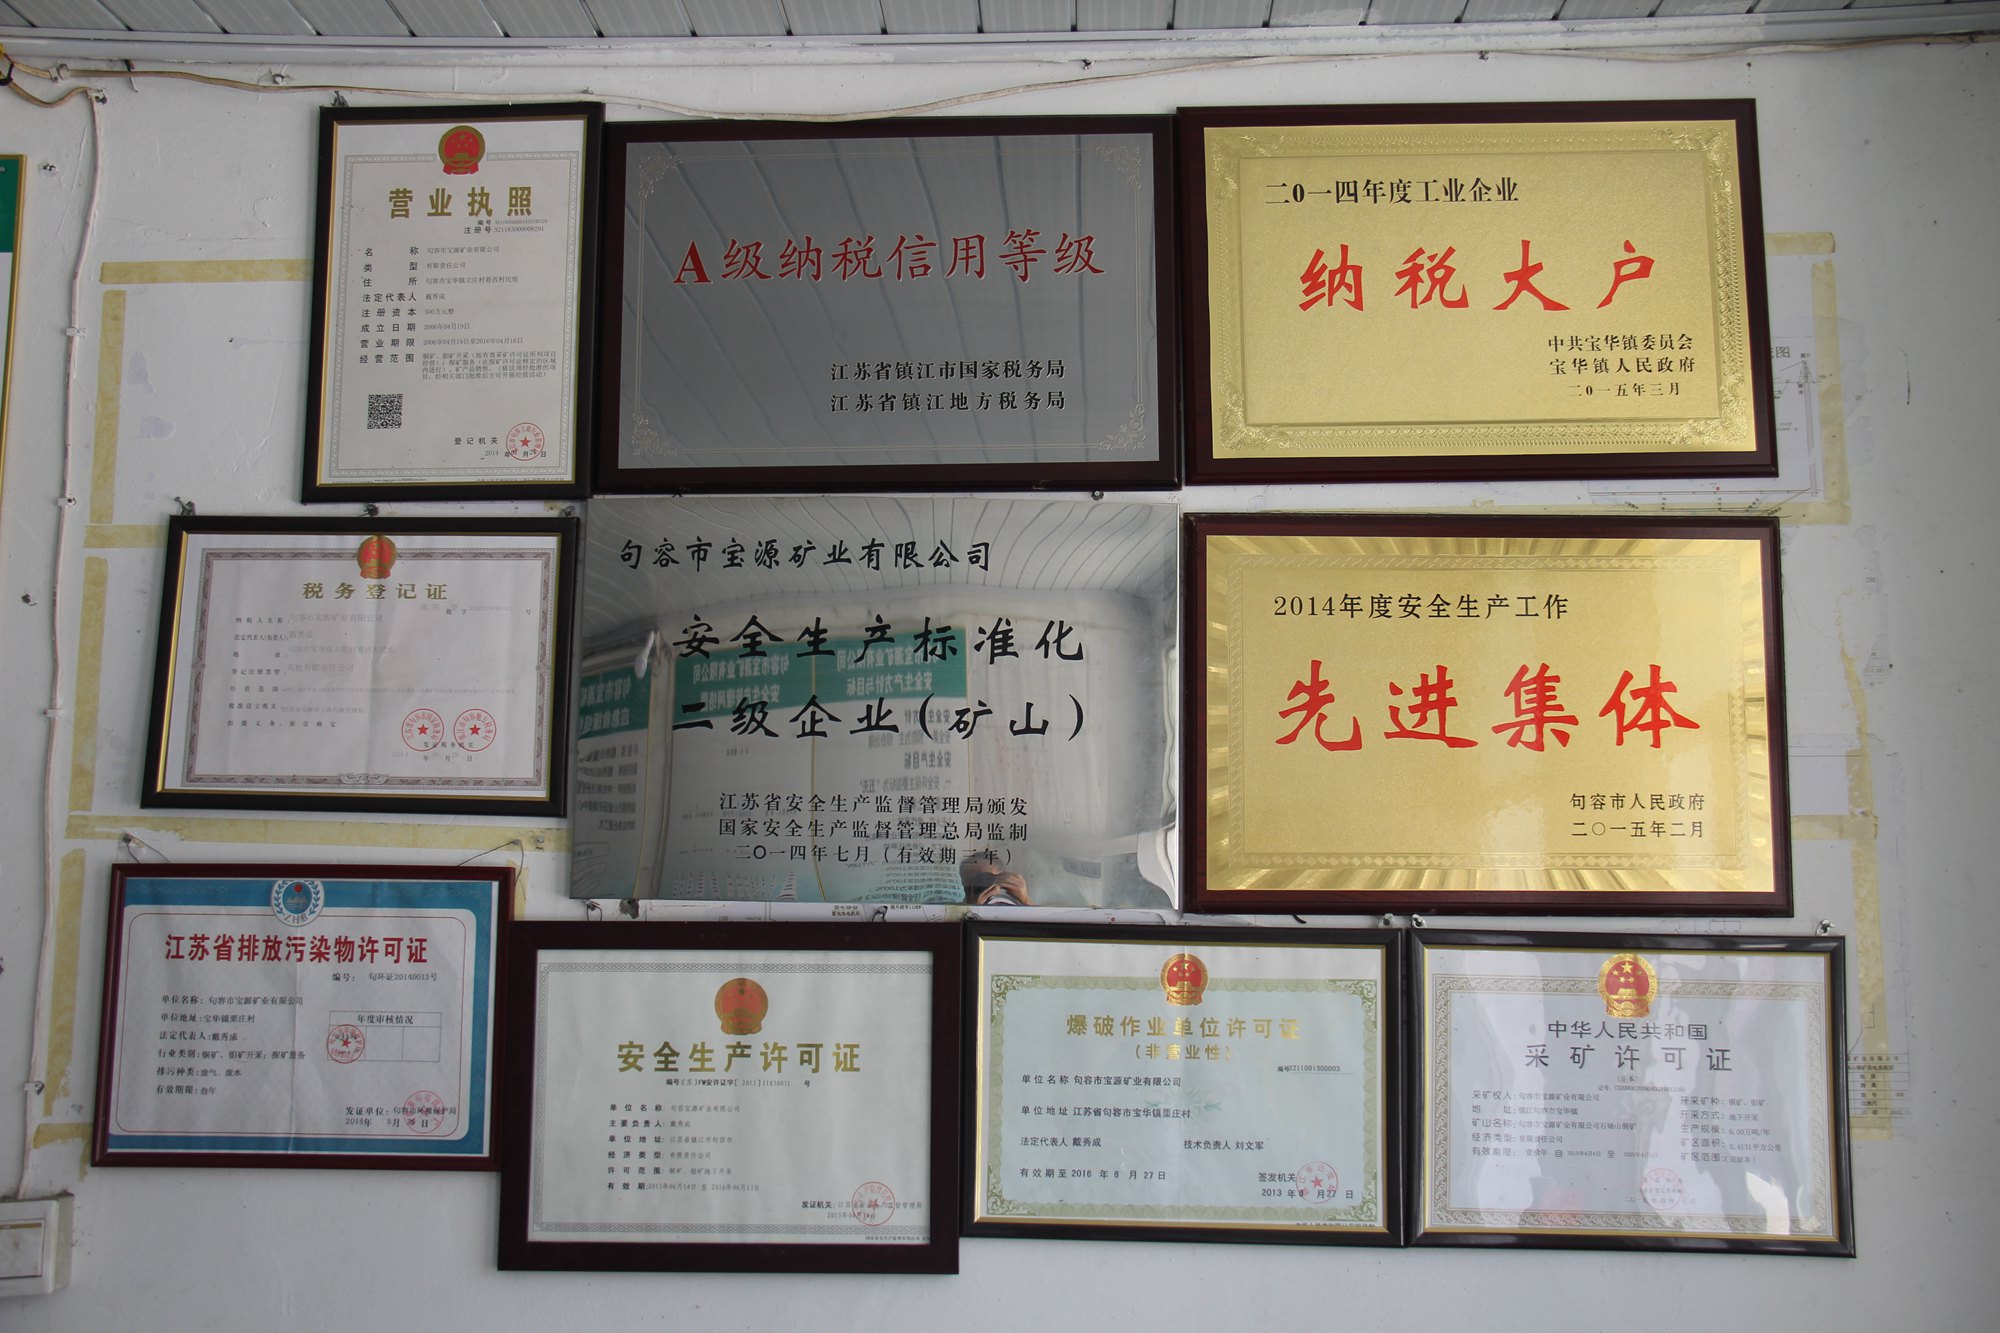 营业执照
注册号 321183000008291
名称 句容市宝源矿业有限公司
类型 有限责任公司
住所 句容市宝华镇立庄村巷西村民组
法定代表人 戴秀成
注册资本 500万元整
成立日期 2006年04月19日
营业期限 2006年04月19日至2016年04月16日
经营范围 铜矿、钼矿开采（按有效采矿许可证所列项目
经营）；探矿服务（在探矿许可证核定的区域
内进行）、矿产品销售。（依法须经批准的项
目，经相关部门批准后方可开展经营活动）
登记机关
2014 年 月 日
A级纳税信用等级
江苏省镇江市国家税务局
江苏省镇江地方税务局
二0一四年度工业企业
纳税大户
中共宝华镇委员会
宝华镇人民政府
二0一五年三月
税务登记证
税字 号
纳税人名称 句容市宝源矿业有限公司
法定代表人(负责人) 戴秀成
地址 句容市宝华镇立庄村巷西村民组
登记注册类型 其他有限责任公司
经营范围
批准设立机关
扣缴义务 依法确定
发证税务机关
2014 年 月 日
句容市宝源矿业有限公司
安全生产标准化
二级企业(矿山)
江苏省安全生产监督管理局颁发
国家安全生产监督管理总局监制
二〇一四年七月（有效期三年）
2014年度安全生产工作
先进集体
句容市人民政府
二〇一五年二月
江苏省排放污染物许可证
编号: 句环证20140013号
单位名称: 句容市宝源矿业有限公司
单位地址: 宝华镇栗庄村
法定代表人: 戴秀成
行业类别: 铜矿、钼矿开采; 探矿服务
排污种类: 废气、废水
有效期限: 叁年
年度审核情况
发证单位: 句容市环境保护局
2014年 5月 26日
安全生产许可证
编号:(苏)FM安许证字[2013]118J003] 号
单位名称: 句容宝源矿业有限公司
主要负责人: 戴秀成
单位地址: 江苏省镇江市句容市
经济类型: 有限责任公司
许可范围: 铜矿、钼矿地下开采
有效期: 2013年06月14日 至 2016年06月13日
发证机关: 江苏省安全生产监督管理局
2013年06月14日
爆破作业单位许可证
(非营业性)
编号3211001300003
单位名称 句容市宝源矿业有限公司
单位地址 江苏省句容市宝华镇栗庄村
法定代表人 戴秀成 技术负责人 刘文军
有效期至 2016 年 6 月 27 日
签发机关
2013 年 6 月27 日
中华人民共和国
采矿许可证
(正本)
采矿权人: 句容市宝源矿业有限公司
地址: 镇江句容市宝华镇
矿山名称: 句容市宝源矿业有限公司石砀山铜矿
经济类型: 有限责任公司
有效期限:
开采矿种: 铜矿、钼矿
开采方式: 地下开采
生产规模: 6.00万吨/年
矿区面积: 0.4131平方公里
矿区范围: (见副本)